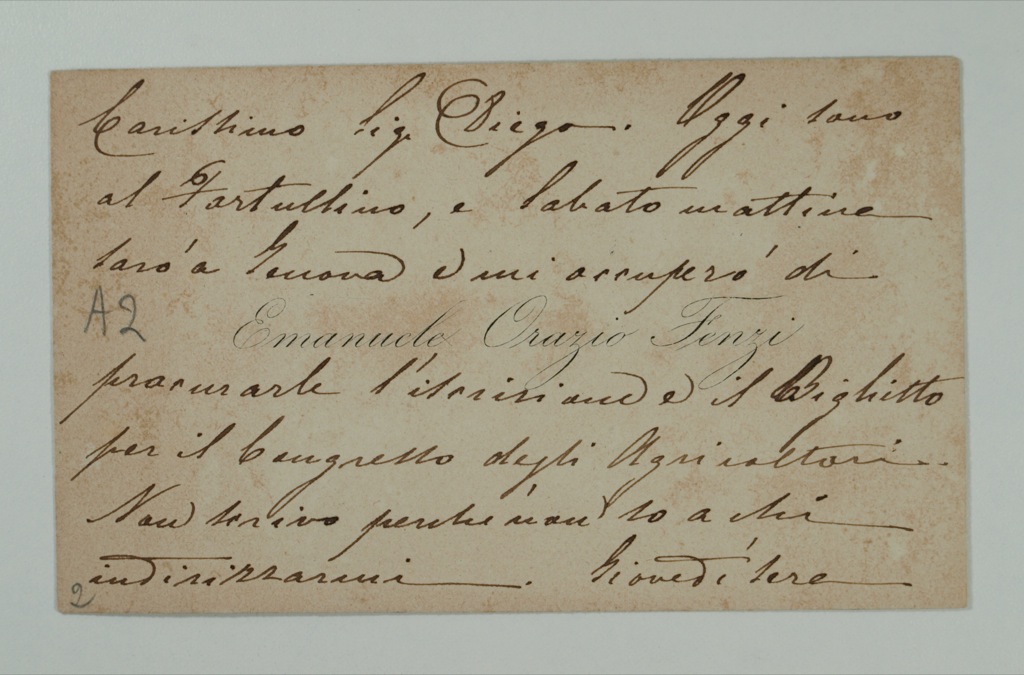 Carissimo Sigr Diego. Oggi sono
al Fortullino, e Sabato mattina
sarò a Genova e mi occuperò di
A2
Emanuele Orazio Fenzi
procurarle l'iscrizione e il Biglietto
per il Congresso degli Agricoltori.
Non scrivo perché non so a chi
indirizzarmi. Giovedì sera
2